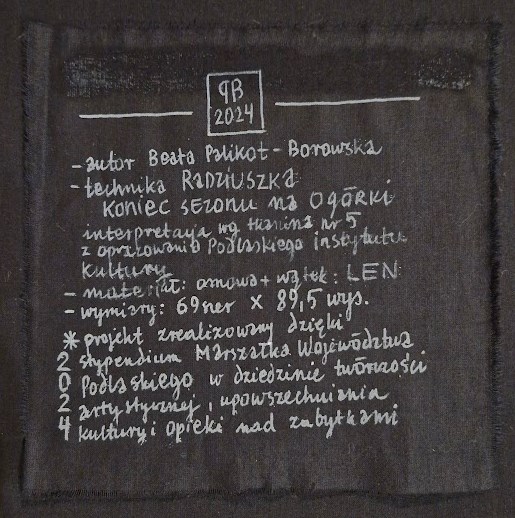 PB
2024
- autor Beata Palikot-Borowska
- technika RADZIUSZKA
KONIEC SEZONU na OGÓRKI
interpretacja wg tkanina nr 5
z opracowania Podlaskiego instytutu
Kultury
- materiał: osnowa + wątek: LEN
- wymiary: 69szer x 89,5 wys.
* projekt zrealizowany dzięki
2 stypendium Marszałka Województwa
0 Podlaskiego w dziedzinie twórczości
2 artystycznej, upowszechniania
4 kultury i opieki nad zabytkami